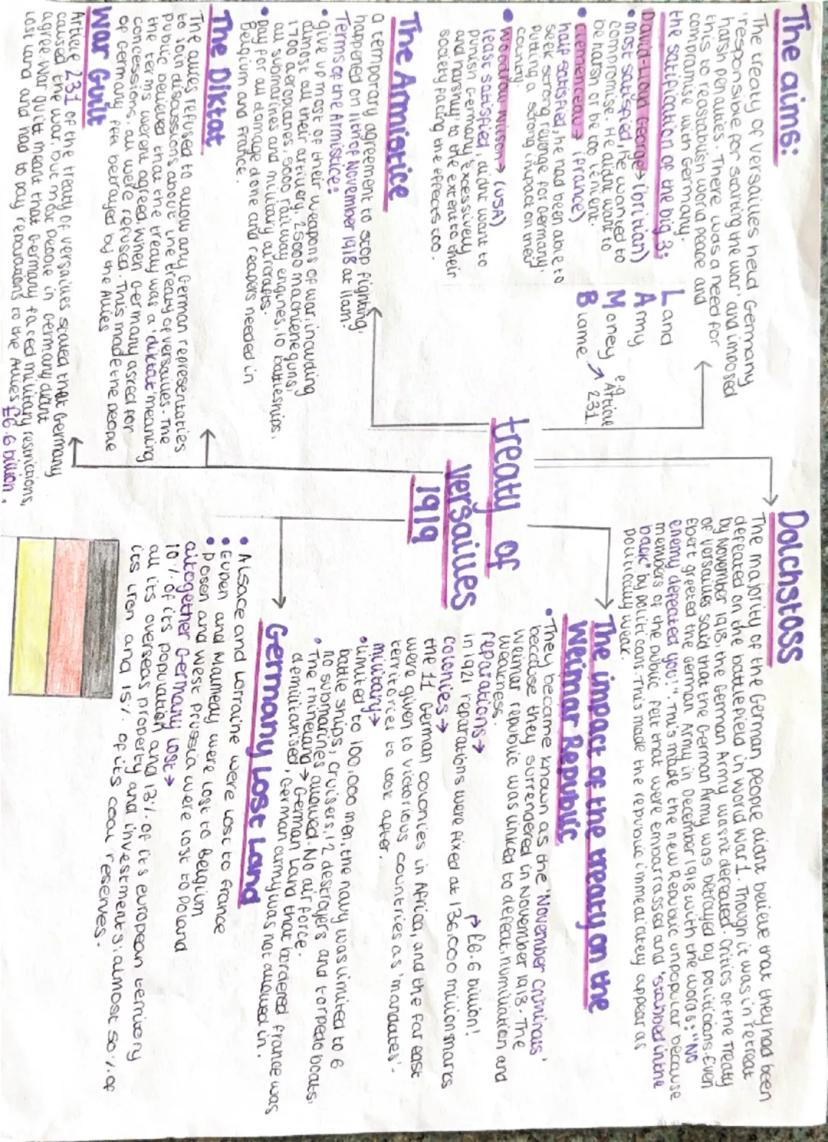 The aims:
The treaty of versailles held Germany
'responsible for starting the war' and imposed
harsh penalties. There was a need for
this to reastablish world peace and
compromise with Germany.
the satisfication of the big 3:
David-Lloyd George → (british)
• most satisfied, he wanted to
compromise. He didnt want to
be harsh or be too lenient.
• clemenceau → (France)
half satisfied, he had been able to
seek strong revenge for Germany.
Putting a strong impact on their
country
• Woodrow wilson → (USA)
least satisfied, didnt want to
punish Germany excessively
and harshly to the extent to their
society facing the effects too.
Land
Army
Money
Blame
e.g
Article
231
The Armistice
a temporary agreement to stop fighting,
happened on 11th of November 1918 at 11am.
Terms of the Armistice:
• give up most of their weapons of war, including
almost all their artillery, 25000 machine guns,
1700 aeroplanes, 5000 railway engines, 10 battleships,
all submarines and military aircrafts.
• pay for all damage done and reapers needed in
Belgium and France.
The Diktat
The allies refused to allow any German representatives
to join discussions about the treaty of versailles. The
public believed that the treaty was a diktat meaning
the terms werent agreed. When Germany asked for
concessions, all were refused. This made the people
of Germany felt betrayed by the Allies
War Guilt
Article 231 of the treaty of versailles stated that Germany
caused the war, but most people in Germany didnt
agree. War guilt meant that Germany faced military restrictions,
lost land and had to pay reparations to the Allies £6.6 billion.
treaty of
versailles
1919
Dolchstoss
The majority of the German people didnt believe that they had been
defeated on the battlefield in world war 1. Though it was in retreat
by November 1918, the German Army wasnt defeated. Critics of the Treaty
of versailles said that the German Army was betrayed by politicians. Even
Ebert greeted the German Army in December 1918 with the words: "No
enemy defeated you:" This made the new Republic unpopular because
members of the public felt that were embarrassed and 'stabbed in the
back" by politicans. This made the republic immediatley appear as
politically weak.
The impact of the treaty on the
Weimar Republic
• They became known as the 'November Criminals'
because they surrendered in November 1918. The
weimar republic was linked to defeat, humiliation and
weakness.
reparations →
→ £6.6 billion!
in 1921 reparations were fixed at 136,000 million marks
colonies →
the 11 German colonies in Africa, and the far east
were given to victorious countries as 'mandates'-
territories to look after.
military →
• limited to 100,000 men, the navy was limited to 6
battle ships, 6 cruisers, 12 destroyers and torpedo boats,
no submarines allowed. No air force.
• The rhineland → German land that bordered france was
demilitarised, German army was not allowed in.
Germany Lost Land
• Alsace and Lorraine were lost to France
• Eupen and Maumedy were lost to Belgium
• Posen and West Prussia were lost to Poland
altogether Germany lost →
10% of its population and 13% of its european territory
all its overseas property and investments; almost 50% of
its iron and 15% of its coal reserves.